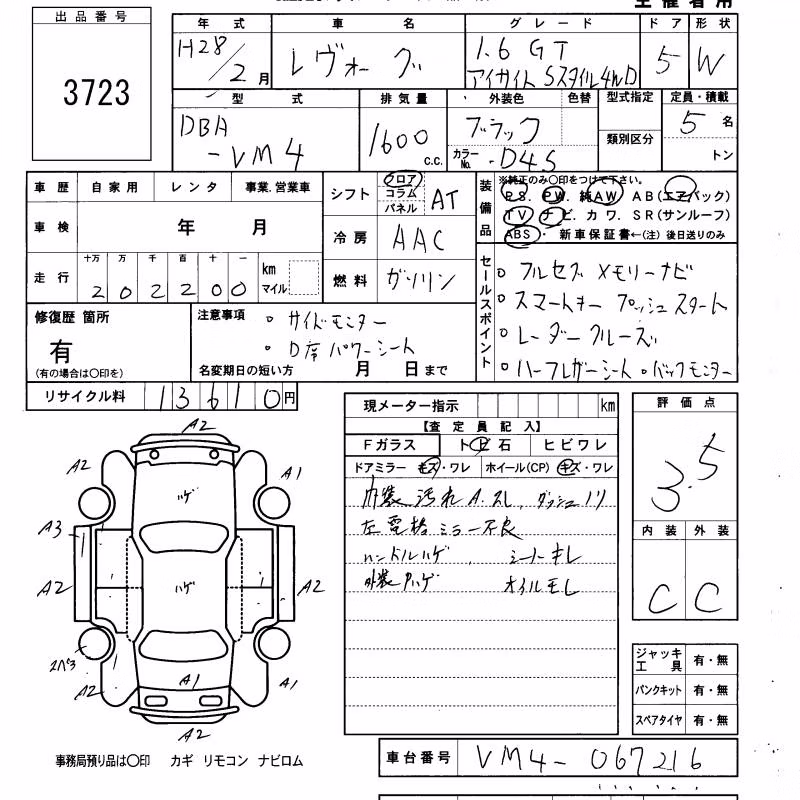 出品番号
3723
年式 車名 グレード ドア 形状
H28/2月 レヴォーグ 1.6 GT アイサイト Sスタイル4WD 5 W
型式 排気量 外装色 色替 型式指定 定員・積載
DBA-VM4 1600c.c. ブラック 類別区分 5名
カラーNo. D4S トン
車歴 自家用 レンタ 事業.営業車
シフト フロア コラム パネル AT
装備品 ※純正のみ〇印をつけて下さい。
P.S. P.W. 純AW AB(エアバック)
TV ナビ カワ. SR(サンルーフ)
ABS・ 新車保証書←(注)後日送りのみ
車検 年 月
冷房 AAC
走行 十万 万 千 百 十 一 km マイル
202200
燃料 ガソリン
セールスポイント
○ フルセグ メモリーナビ
○ スマートキー プッシュスタート
○ レーダークルーズ
○ ハーフレザーシート ○ バックモニター
修復歴 箇所
有
(有の場合は〇印を)
注意事項
○ サイドモニター
○ D席パワーシート
名変期日の短い方 月 日まで
リサイクル料 13610円
現メーター指示 km
【査定員記入】
Fガラス トビ石 ヒビワレ
ドアミラー キズ・ワレ ホイール(CP) キズ・ワレ
内装 汚れ A.スレ, ダッシュノリ
左電格ミラー不良
ハンドルハゲ シートキレ
外装ハゲ オイルモレ
評価点
3.5
内装 外装
C C
A2
A2 A1
ハゲ
A3
A2 ハゲ A2
A2 A1 A1
A2
ジャッキ工具 有・無
パンクキット 有・無
スペアタイヤ 有・無
事務局預り品は〇印 カギ リモコン ナビロム
車台番号 VM4-067216